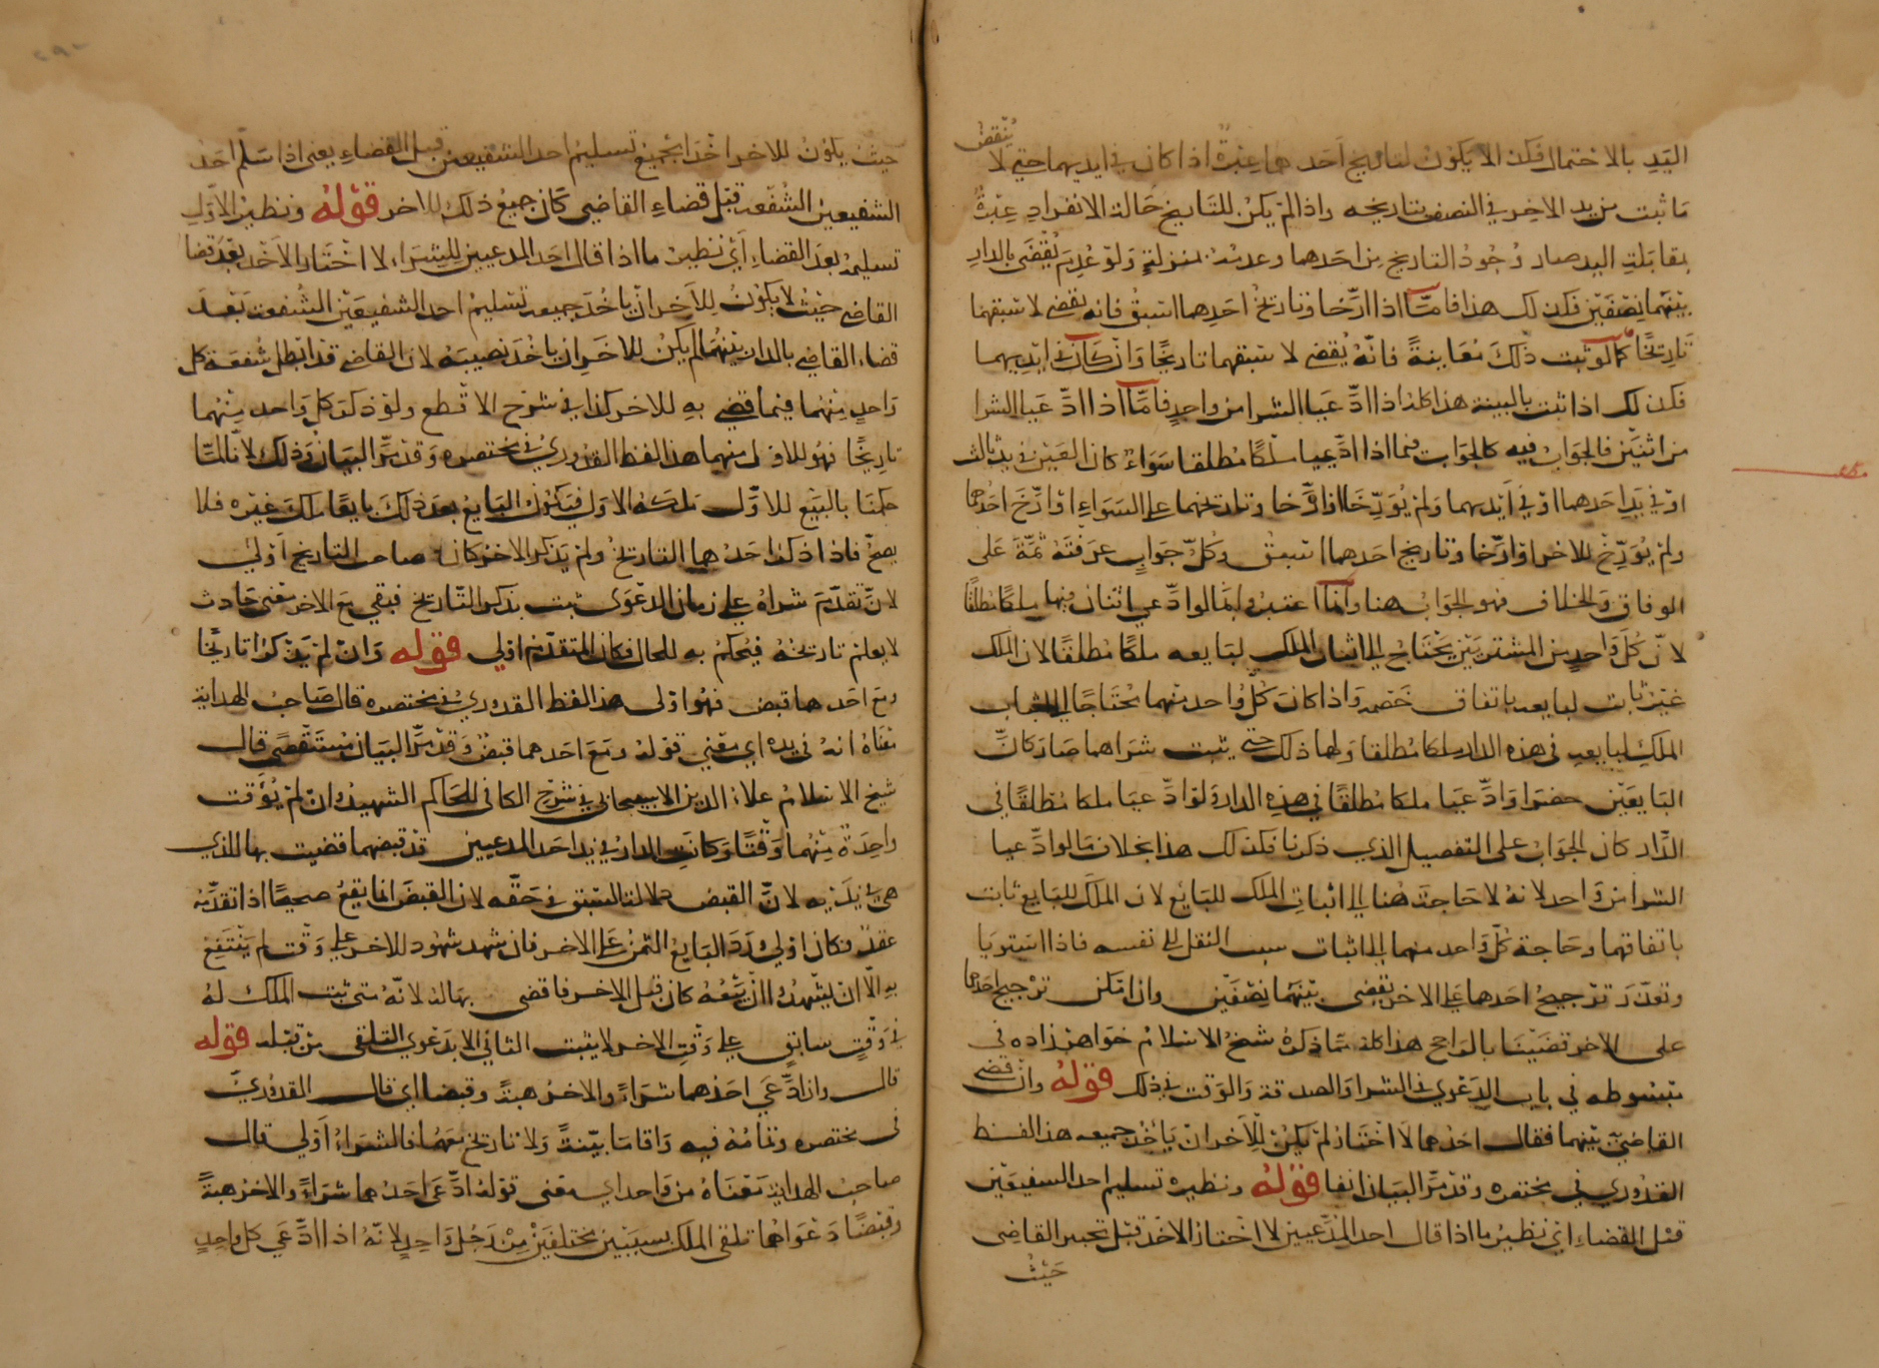 اليد بالاحتمال فكذا لا يكون لتاريخ احدهما عبرة اذا كان في ايديهما حتى لا ينقض
ما ثبت من يد الاخر في النصف بتاريخه واذا لم يكن للتاريخ حالة الانفراد عبرة
بمقابلة اليد صار وجود التاريخ من احدهما وعدمه بمنزلة ولو عدم يقضى بالدار
بينهما نصفين فكذلك هذا فاما اذا ارخا وتاريخ احدهما اسبق فانه يقضى لاسبقهما
تاريخا كما لو ثبت ذلك معاينة فانه يقضى لاسبقهما تاريخا وان كان في ايديهما
فكذلك اذا ثبت بالبينة هذا كله اذا ادعيا الشرا من واحد فاما اذا ادعيا الشرا
من اثنين فالجواب فيه كالجواب فيما اذا ادعيا ملكا مطلقا سواء كان العين في يد ثالث
او في يد احدهما او في ايديهما ولم يؤرخا او ارخا وتاريخهما على السواء او ارخ احدهما
ولم يؤرخ الاخر او ارخا وتاريخ احدهما اسبق وكل جواب عرفته ثمة على
الوفاق والخلاف فهو الجواب هنا وانما اعتبر بما لو ادعى اثنان فيها ملكا مطلقا
لان كل واحد من المشتريين يحتاج الى اثبات الملك لبايعه ملكا مطلقا لان الملك
غير ثابت لبايعه باتفاق خصمه واذا كان كل واحد منهما محتاجا الى اثبات
الملك لبايعه في هذه الدار ملكا مطلقا ولهما ذلك حتى يثبت شراهما صار كان
البايعين حضرا وادعيا ملكا مطلقا في هذه الدار ولو ادعيا ملكا مطلقا في
الدار كان الجواب على التفصيل الذي ذكرنا فكذلك هذا بخلاف ما لو ادعيا
الشرا من واحد لانه لا حاجة هنا الى اثبات الملك للبايع لان الملك للبايع ثابت
باتفاقهما وحاجة كل واحد منهما الى اثبات سبب النقل الى نفسه فاذا استويا
وتعذر ترجيح احدهما على الاخر يقضى بينهما نصفين وان امكن ترجيح احدهما
على الاخر قضينا بالراجح هذا كله مما ذكره شيخ الاسلام خواهرزاده في
مبسوطه في باب الدعوى في الشرا والصدقة والوقت في ذلك قوله وان قضى
القاضي بينهما فقال احدهما لا اختار لم يكن للاخر ان ياخذ جميعه هذا لفظ
القدوري في مختصره وقد مر البيان انفا قوله ونظيره تسليم احد الشفيعين
قبل القضاء اي نظير ما اذا قال احد المدعيين لا اختار الاخذ قبل تخيير القاضي
حيث
حيث يكون للاخر اخذ الجميع تسليم احد الشفيعين قبل القضاء يعني اذا سلم احد
الشفيعين الشفعة قبل قضاء القاضي كان جميع ذلك للاخر قوله ونظير الاول
تسليمه بعد القضاء اي نظير ما اذا قال احد المدعيين للشراء لا اختار الاخذ بعد قضا
القاضي حيث لا يكون للاخر ان ياخذ جميعه تسليم احد الشفيعين الشفعة بعد
قضاء القاضي بالدار بينهما لم يكن للاخر ان ياخذ نصيبه لان القاضي قد ابطل شفعة كل
واحد منهما فيما قضى به للاخر كذا في شرح الاقطع ولو ذكر كل واحد منهما
تاريخا فهو للاول منهما هذا لفظ القدوري في مختصره وقد مر البيان وذلك لانا لما
حكمنا بالبيع للاول ملكه الاول فيكون البايع بعد ذلك بايعا ملك غيره فلا
يصح فاذا ذكر احدهما التاريخ ولم يذكر الاخر كان صاحب التاريخ اولى
لان تقدم شراه على زمان الدعوى ثبت بذكر التاريخ فبقي مع الاخر معنى حادث
لا يعلم تاريخه فيحكم به للحال فكان المتقدم اولى قوله وان لم يذكرا تاريخا
ومع احدهما قبض فهو اولى هذا لفظ القدوري في مختصره قال صاحب الهداية
معناه انه في يده اي معنى قوله ومع احدهما قبض وقد مر البيان مستقصى قال
شيخ الاسلام علاء الدين الاسبيجابي في شرح الكافي للحاكم الشهيد وان لم يؤقت
واحدة منهما وقتا وكانت الدار في يد احد المدعيين قد قبضهما قضيت بها للذي
هي في يديه لان القبض دلالة السبق في حقه لان القبض انما يقع صحيحا اذا تقدمه
عقد فكان اولى ورد البايع الثمن على الاخر فان شهد شهود للاخر على وقت لم ينتفع
به الا ان يشهدوا ان بيعه كان قبل الاخر فاقضى بها له لانه متى ثبت الملك له
في وقت سابق على وقت الاخر لا يثبت الثاني الا بدعوى التلقي من قبله قوله
قال وان ادعى احدهما شراء والاخر هبة وقبضا اي قال القدوري
في مختصره وتمامه فيه واقاما بينة ولا تاريخ معهما فالشراء اولى قال
صاحب الهداية معناه من واحد اي معنى قوله ادعى احدهما شراء والاخر هبة
وقبضا دعواهما تلقي الملك بسببين مختلفين من رجل واحد لانه اذا ادعى كل واحد